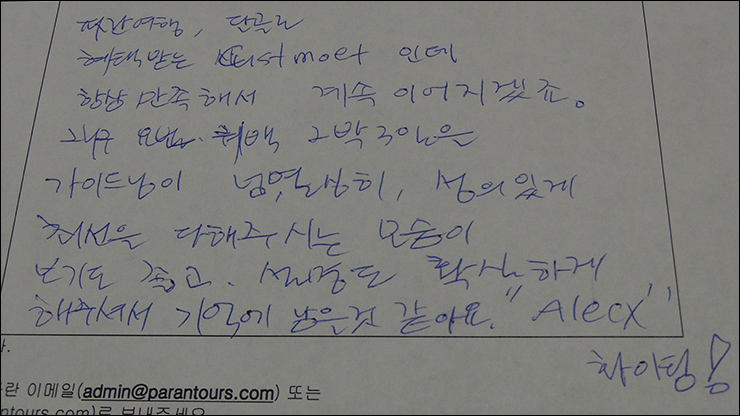 파란여행, 단골로
혜택받는 Custmoer 인데
항상 만족해서 계속 이어지겠죠.
2박 3일은
가이드님이 넘 열심히, 성의있게
최선을 다해주시는 모습이
보기도 좋고, 설명도 확실하게
해주셔서 기억에 남을것 같아요. "Alecx"
화이팅!
란 이메일(admin@parantours.com) 또는
ntours.com)로 보내주세요